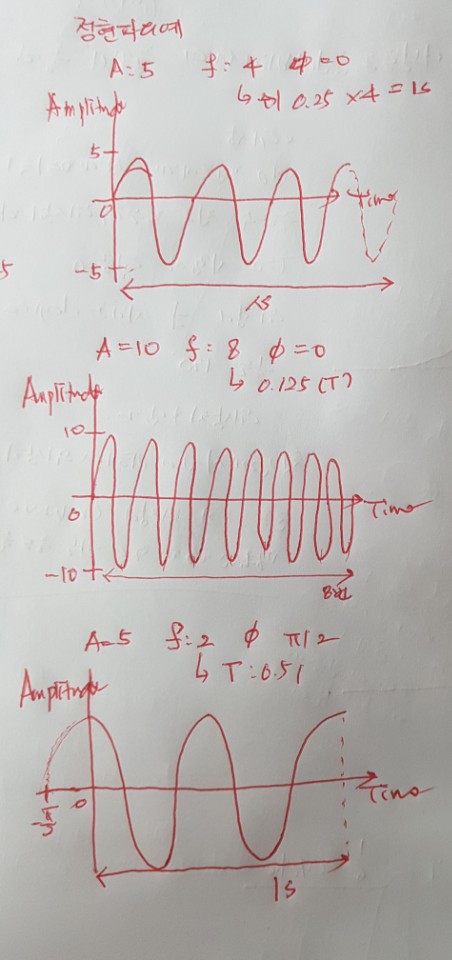 정현파의 예
A=5 f: 4 Φ=0
↳ 0.25 ×4 = 1s
Amplitude
5
0
Time
-5
5
1s
A=10 f: 8 Φ=0
↳ 0.125 (T)
Amplitude
10
0
Time
-10
A=5 f:2 Φ π/2
↳ T:0.5
Amplitude
0
Time
1s